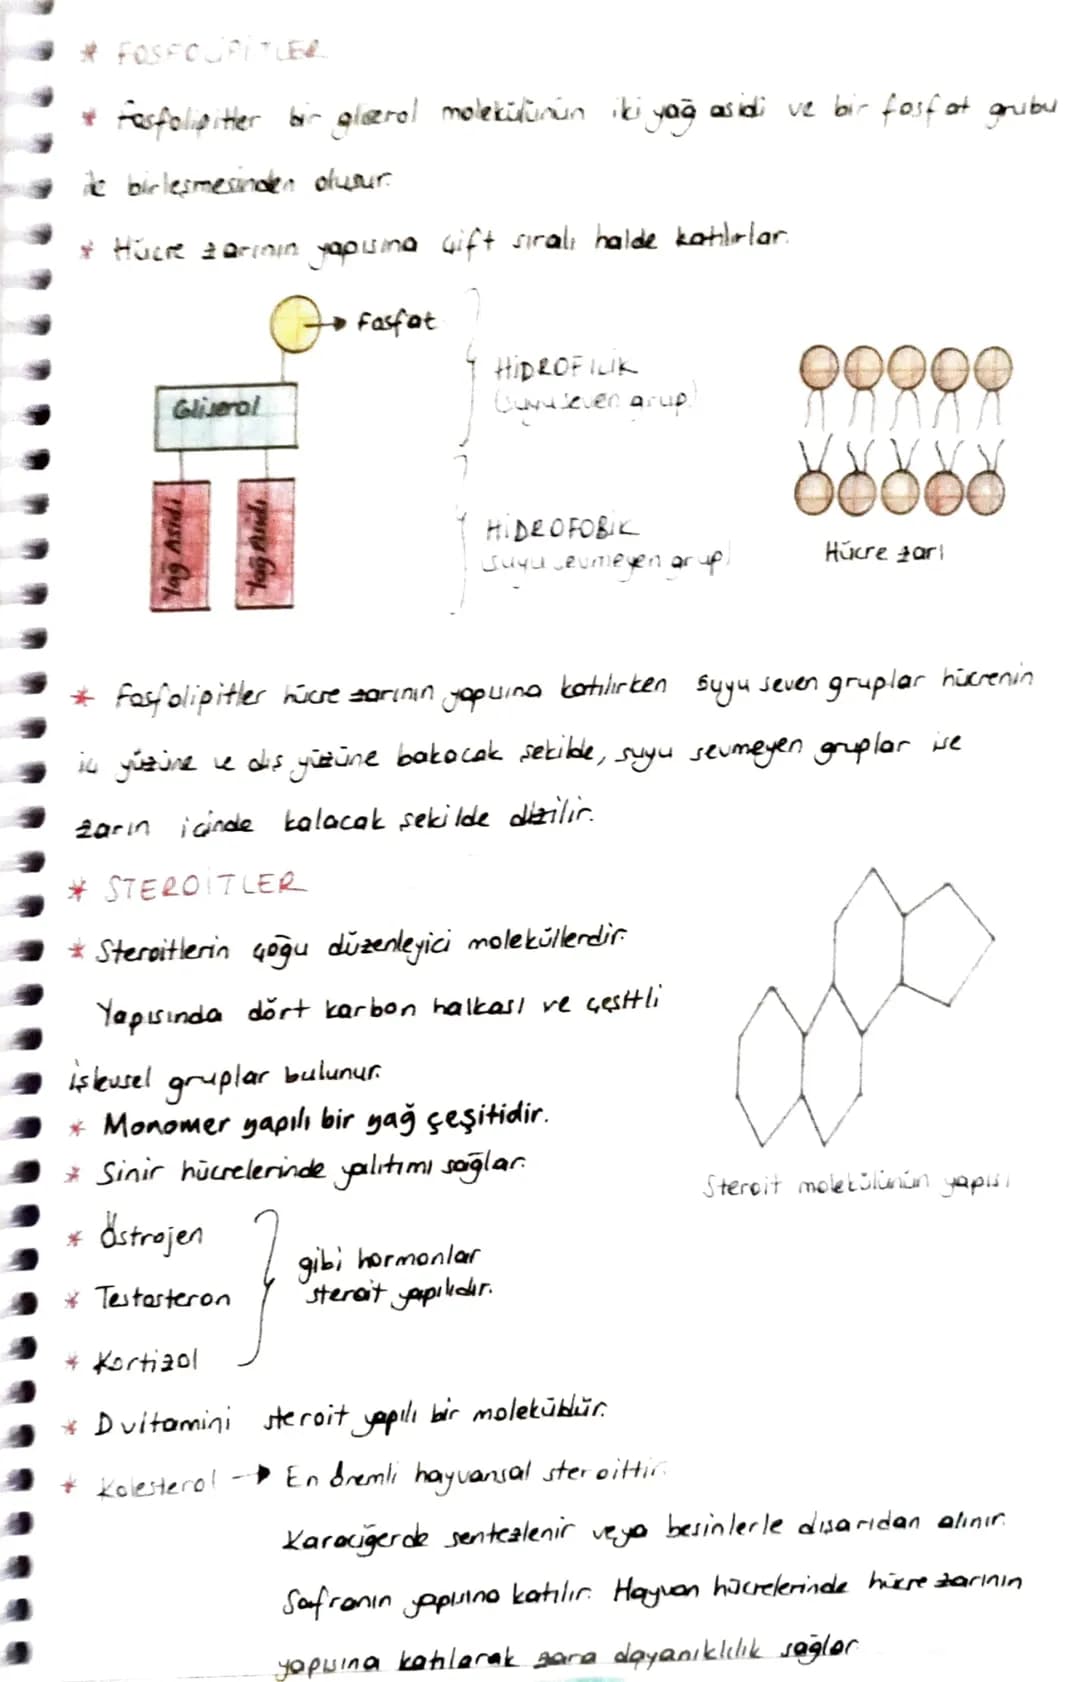 * FOSFOLİPİTLER
* Fosfolipitler bir gliserol molekülünün iki yağ asidi ve bir fosfat grubu
ile birleşmesinden oluşur.
* Hücre zarının yapısına çift sıralı halde katılırlar.
Fosfat
Gliserol
Yağ Asidi
Yağ Asidi
HİDROFİLİK
(suyu seven grup)
HİDROFOBİK
suyu sevmeyen grup)
Hücre zarı
* Fosfolipitler hücre zarının yapısına katılırken suyu seven gruplar hücrenin
iç yüzüne ve dış yüzüne bakacak şekilde, suyu sevmeyen gruplar ise
zarın içinde kalacak şekilde dizilir.
* STEROİTLER
* Steroitlerin çoğu düzenleyici moleküllerdir.
Yapısında dört karbon halkası ve çeşitli
işlevsel gruplar bulunur.
* Monomer yapılı bir yağ çeşitidir.
* Sinir hücrelerinde yalıtımı sağlar.
Steroit molekülünün yapısı
* Östrojen
* Testosteron
* Kortizol
gibi hormonlar
steroit yapılıdır.
* D vitamini steroit yapılı bir moleküldür.
* Kolesterol → En önemli hayvansal steroittir.
Karaciğerde sentezlenir veya besinlerle dışarıdan alınır.
Safranın yapısına katılır. Hayvan hücrelerinde hücre zarının
yapısına katılarak zara dayanıklılık sağlar